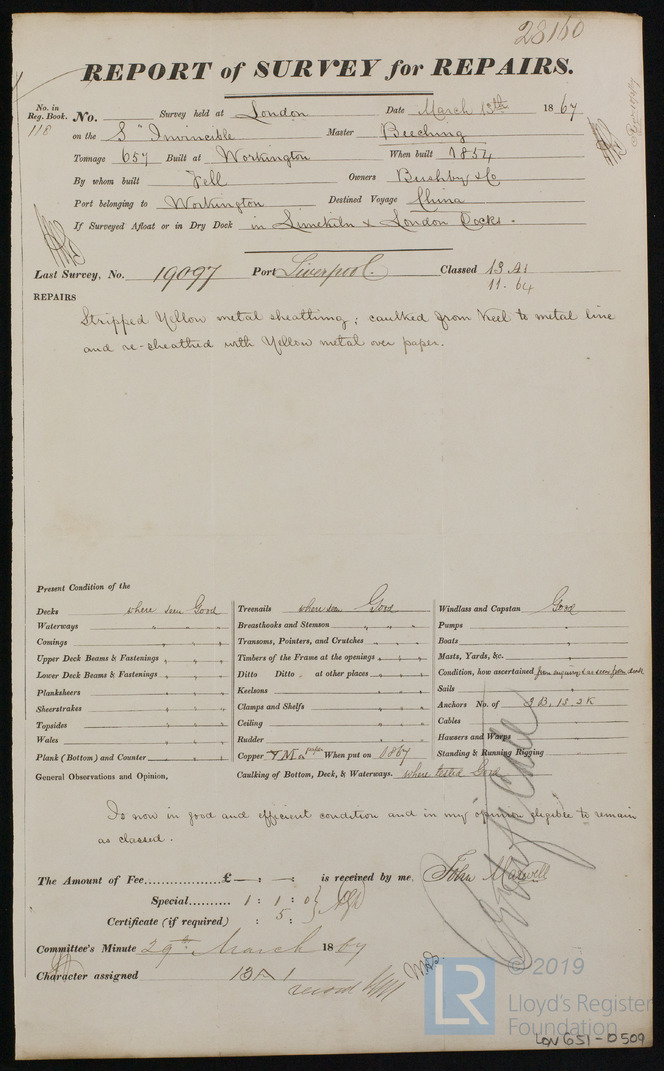 28160
REPORT of SURVEY for REPAIRS.
No. in Reg. Book. 118 No. Survey held at London Date March 13th 1867
on the S "Invincible Master Beeching
Tonnage 657 Built at Workington When built 1854
By whom built Fell Owners Bushby & Co
Port belonging to Workington Destined Voyage China
If Surveyed Afloat or in Dry Dock in Limekiln & London Docks.
Last Survey, No. 19097 Port Liverpool Classed 13 A1
11. 64
REPAIRS
Stripped Yellow metal sheathing; caulked from Keel to metal line
and re-sheathed with Yellow metal over paper.
Present Condition of the
Decks where seen Good
Waterways " " "
Comings " " "
Upper Deck Beams & Fastenings " " "
Lower Deck Beams & Fastenings " " "
Planksheers " " "
Sheerstrakes " " "
Topsides " " "
Wales " " "
Plank (Bottom) and Counter " " "
Treenails where seen Good
Breasthooks and Stemson " " "
Transoms, Pointers, and Crutches " " "
Timbers of the Frame at the openings " " "
Ditto Ditto at other places " " "
Keelsons " " "
Clamps and Shelfs " " "
Ceiling " " "
Rudder " " "
Copper Y M a paper When put on 1867
Windlass and Capstan Good
Pumps "
Boats "
Masts, Yards, &c. "
Condition, how ascertained from enquiry & as seen from deck
Sails "
Anchors No. of 3 B, 1 S, 2 K
Cables
Hawsers and Warps
Standing & Running Rigging
General Observations and Opinion, Caulking of Bottom, Deck, & Waterways. where tested Good
Is now in good and efficient condition and in my opinion eligible to remain
as classed.
The Amount of Fee £ — : — : is received by me, John Maxwell
Special 1 : 1 : 0
Certificate (if required) : 5 :
Committee's Minute 29th March 1867
Character assigned 13 A 1
© 2019
LR Lloyd's Register
Foundation
LON 651-0509